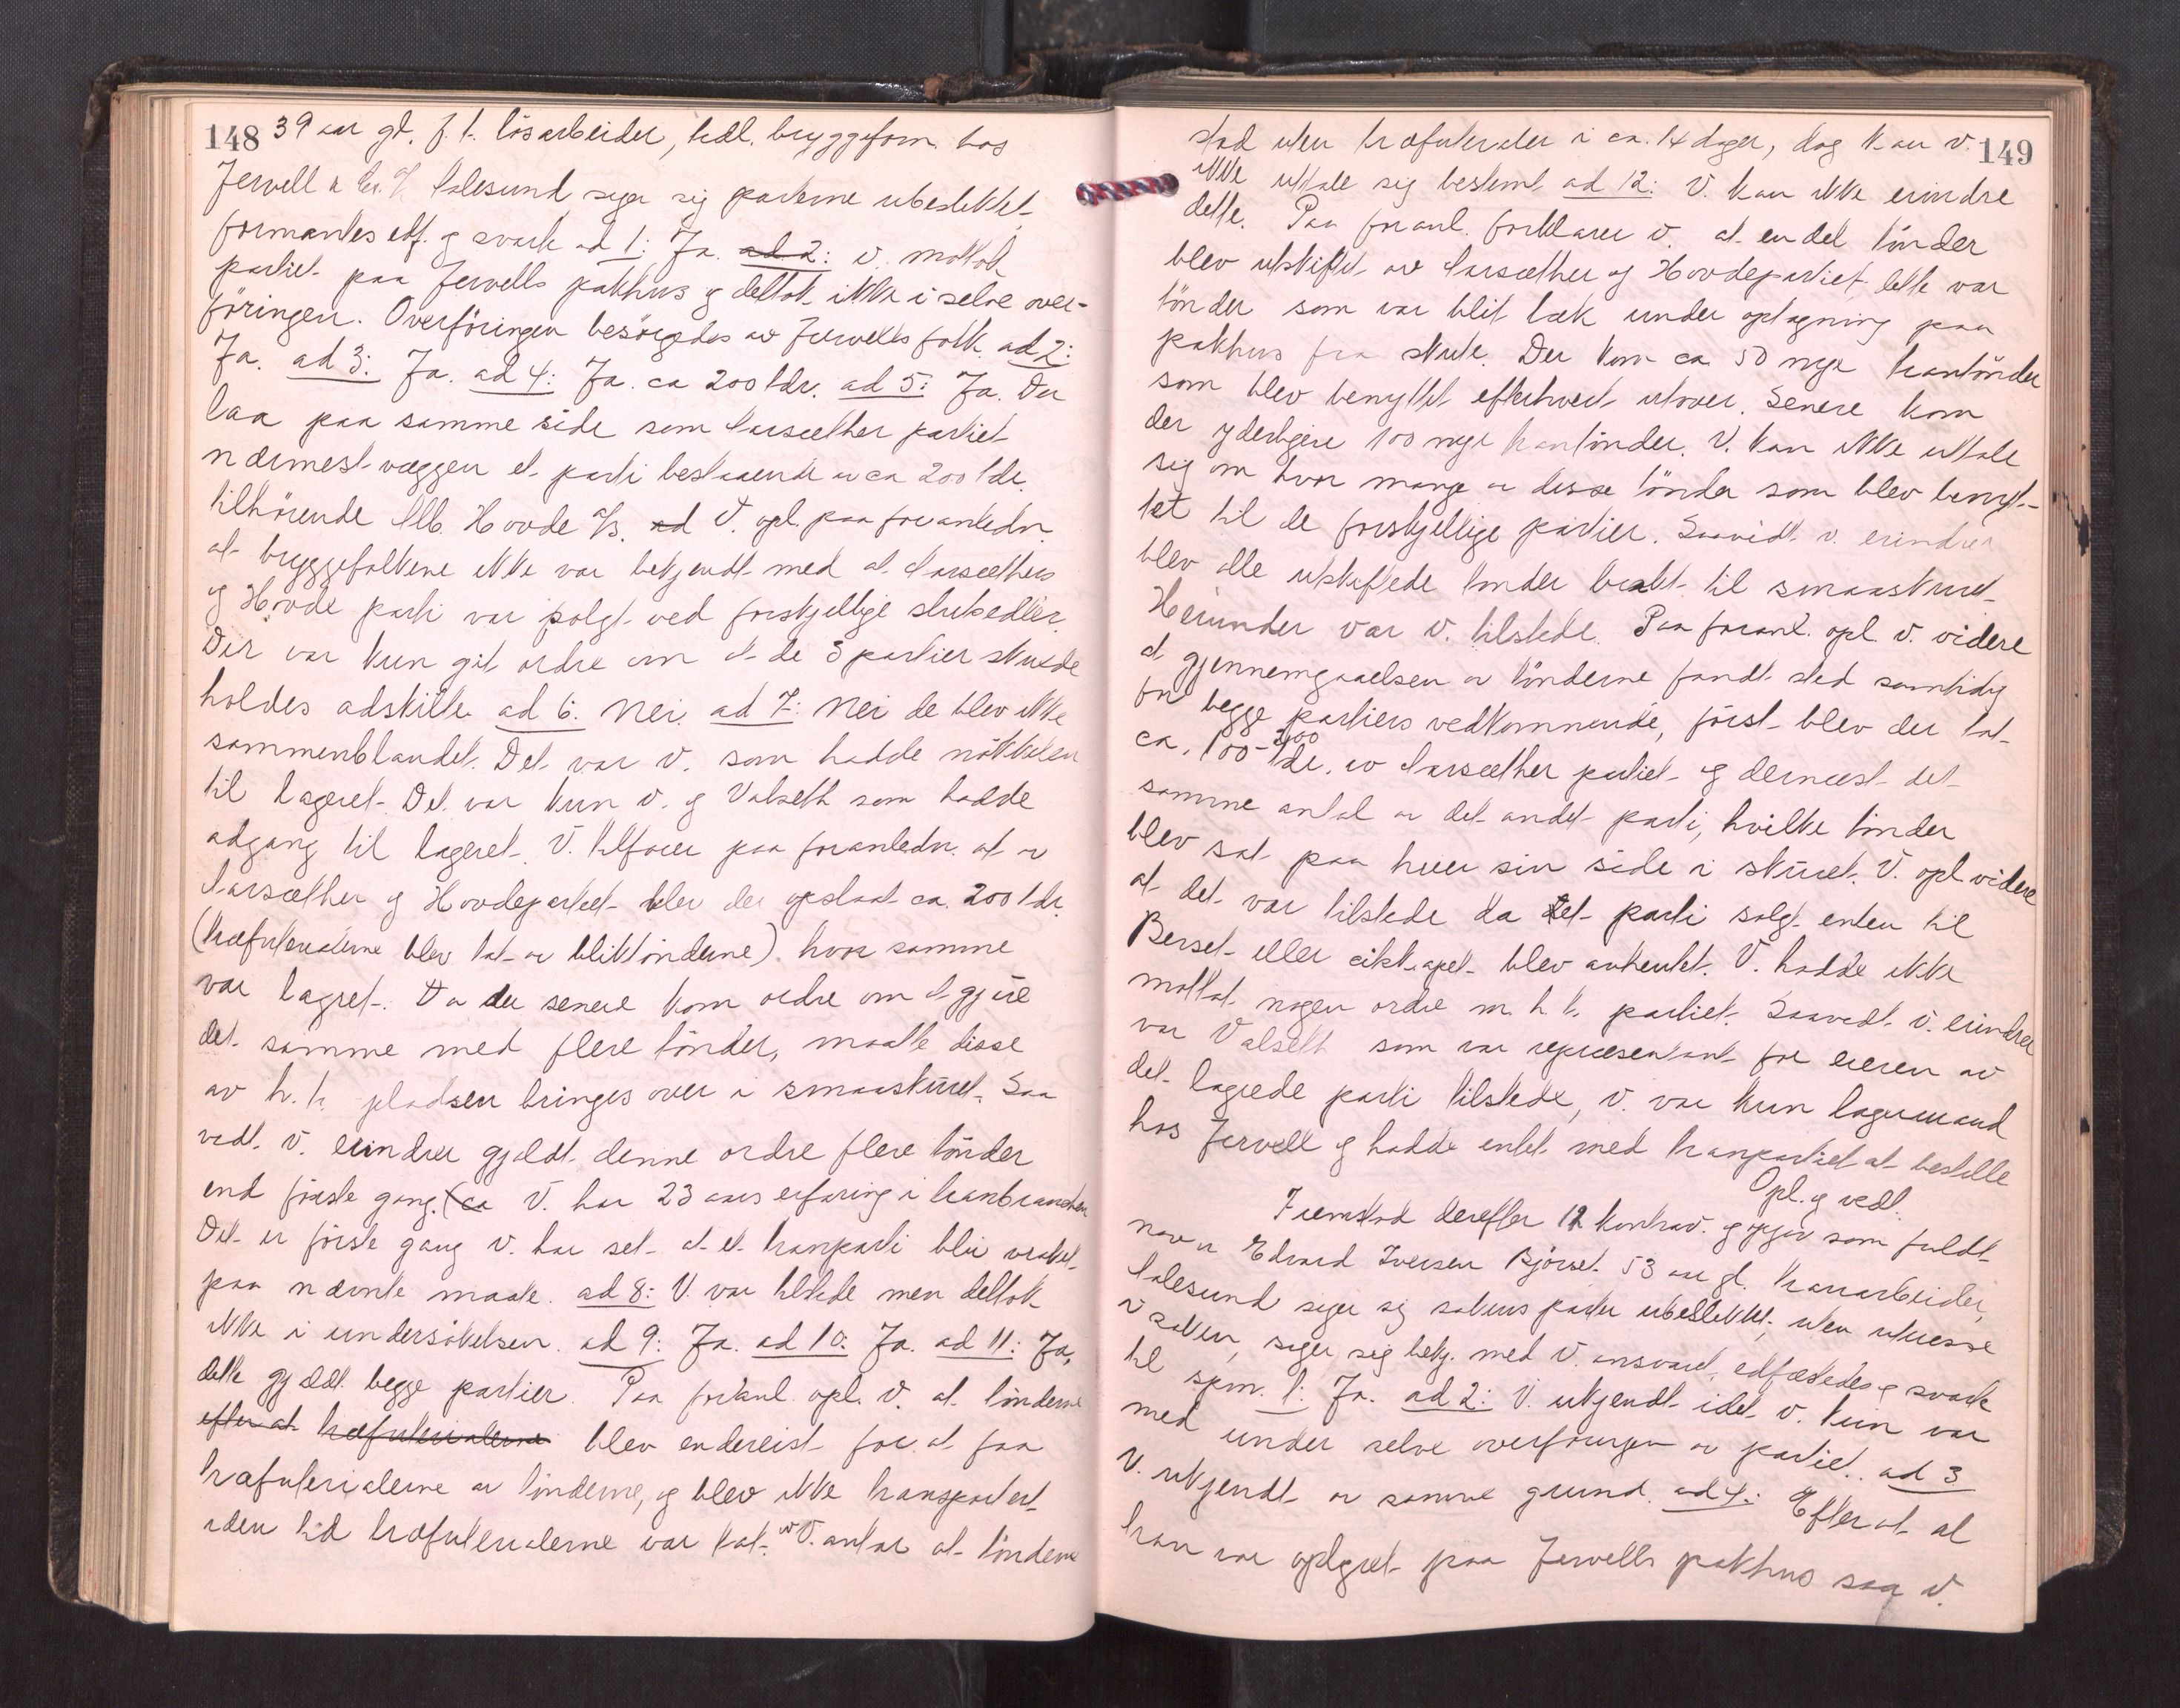 148
39 aar gl. f. t. løsarbeider, tidl. bryggeform. hos
Jervell & Co. A/S Aalesund siger sig parterne ubeslektet
formantes edf. og svarte ad 1: Ja. ad 2: v. mottok
partiet paa Jervells pakhus og deltok ikke i selve over-
føringen. Overføringen besørgedes av Jervells folk. ad 2:
Ja. ad 3: Ja. ad 4: Ja. ca 200 tdr. ad 5: Ja. Der
laa paa samme side som Aarsæther partiet
nærmest væggen et parti bestaaende av ca 200 tdr.
tilhørende Alb. Hovde A/S. ad V. opl. paa foranledn.
at bryggefolkene ikke var bekjendt med at Aarsæthers
og Hovde parti var solgt ved forskjellige slutsedler.
Der var kun git ordre om at de 3 partier skulde
holdes adskilte ad 6: Nei. ad 7: Nei de blev ikke
sammenblandet. Det var v. som hadde nøkkelen
til lageret. Det var kun v. og Valseth som hadde
adgang til lageret. V. tilføier paa foranledn. at av
Aarsæther og Hovdepartiet blev der opslaat ca. 200 tdr.
(træfuterálerne blev tat av bliktønderne) hvor samme
var lagret. Da der senere kom ordre om at gjøre
det samme med flere tønder, maatte disse
av h. t. pladsen bringes over i smaaskuret. Saa
vidt v. erindrer gjaldt denne ordre flere tønder
end første gang. (ca V. har 23 aars erfaring i tranbranchen
Det er første gang v. har set at et tranparti blir vraket
paa nævnte maate. ad 8: V. var tilstede men deltok
ikke i undersøkelsen. ad 9: Ja. ad 10: Ja. ad 11: Ja,
dette gjaldt begge partier. Paa foranl. opl. v. at tønderne
efter at træfuterialerne blev endereist for at faa
træfuterialerne av tønderne, og blev ikke transportert
i den tid træfuterialerne var tat av. V. antar at tønderne
149
stod uten træfuteraler i ca. 14 dager, dog kan v.
ikke uttale sig bestemt ad 12: V. kan ikke erindre
dette. Paa foranl. forklarer v. at en del tønder
blev utskiftet av Aarsæther og Hovdepartiet, dette var
tønder som var blit læk under optagning paa
pakhus fra skute. Der kom ca 50 nye trantønder
som blev benyttet efterhvert utover. Senere kom
der yderligere 100 nye trantønder. V. kan ikke uttale
sig om hvor mange av disse tønder som blev benyt-
tet til de forskjellige partier. Saavidt v. erindrer
blev alle utskiftede tønder bragt til smaaskuret
Herunder var v. tilstede. Paa foranl. opl. v. videre
at gjennemgaaelsen av tønderne fandt sted samtidig
for begge partiers vedkommende, først blev der tat
ca. 100-200 tdr. av Aarsæther partiet og dernæst det
samme antal av det andet parti, hvilke tønder
blev sat paa hver sin side i skuret. V. opl. videre
at det var tilstede da det parti solgt enten til
Berset eller eikefapet blev avhentet. V. hadde ikke
mottat nogen ordre m. h. t. partiet. Saavidt v. erindrer
var Valseth som var repræsentant for eieren av
det lagrede parti tilstede, v. var kun lagermand
hos Jervell og hadde intet med tranpartiet at bestille
Opl. og vedt.
Fremstod derefter 12 kontrav. og opgav som fuldt
navn Edvard Iversen Bjørset 53 aar gl. tranarbeider,
Aalesund siger sig sakens parter ubeslektet, uten interesse
i saken, siger sig bekj. med v. ansvaret, edfæstedes og svarte
til spm. 1: Ja. ad 2: V. ukjendt idet v. kun var
med under selve overføringen av partiet. ad 3
V. ukjendt av samme grund. ad 4: Efterat al
tran var oplagret paa Jervells pakhus saa v.